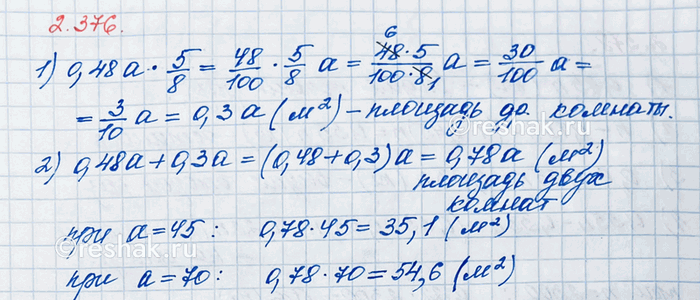 2.376.
1) 0,48a · 5/8 = 48/100 · 5/8 a = 48·5/100·8 a = 30/100 a =
= 3/10 a = 0,3a (м²) – площадь комнаты.
2) 0,48a + 0,3a = (0,48 + 0,3)a = 0,78a (м²)
площадь двух
комнат
при a = 45 : 0,78 · 45 = 35,1 (м²)
при a = 70 : 0,78 · 70 = 54,6 (м²)